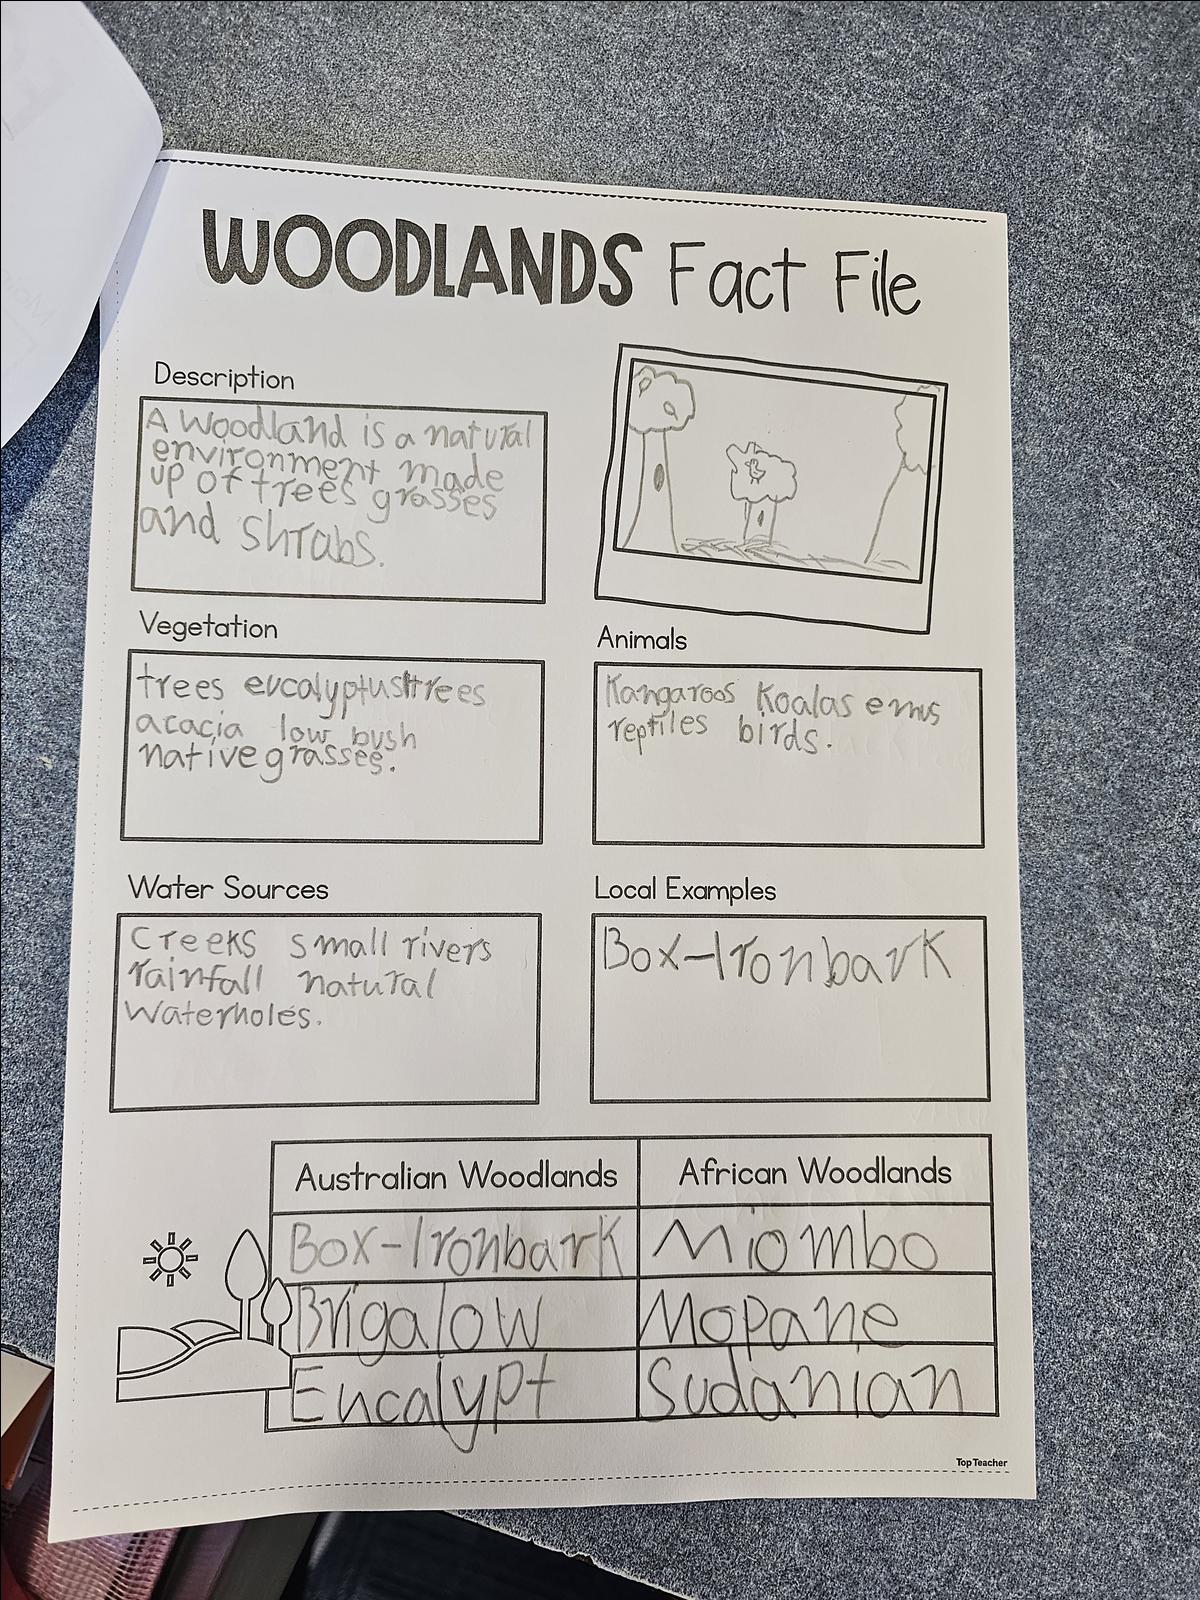 WOODLANDS Fact File
Description
A Woodland is a natural
environment made
up of trees grasses
and shrabs.
Vegetation
trees eucalyptus trees
acacia low bush
native grasses.
Animals
Kangaroos Koalas emus
reptiles birds.
Water Sources
Creeks small rivers
rainfall natural
waterholes.
Local Examples
Box-Ironbark
Australian Woodlands
African Woodlands
Box-Ironbark
Miombo
Brigalow
Mopane
Eucalypt
Sudanian
Top Teacher